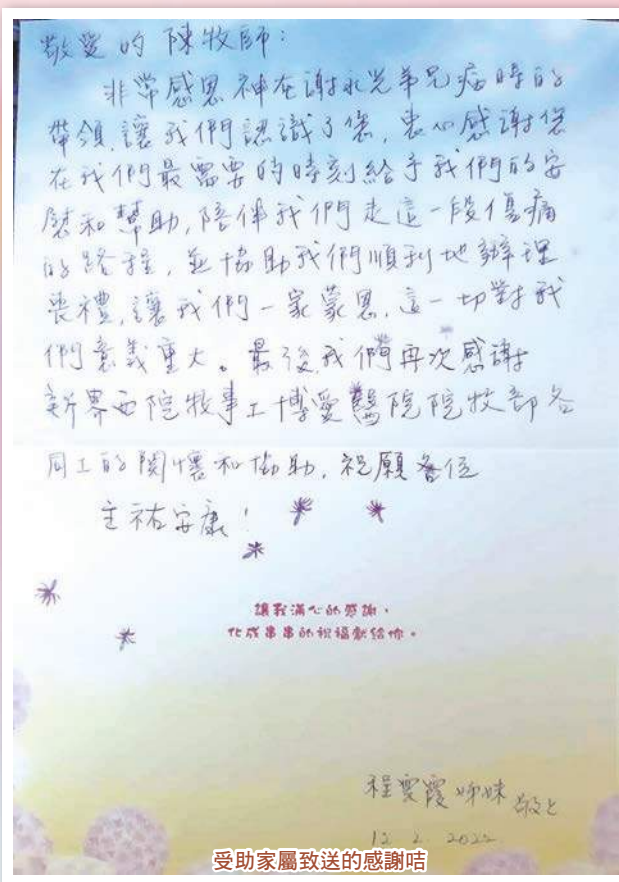 敬愛的陳牧師：
非常感恩神在謝永光弟兄病時的
帶領,讓我們認識了您,衷心感謝您
在我們最需要的時刻給予我們的安
慰和幫助,陪伴我們走這一段傷痛
的路程，並協助我們順利地辦理
喪禮,讓我們一家蒙恩,這一切對我
們意義重大。最後,我們再次感謝
新界西院牧事工博愛醫院院牧部各
同工的關懷和協助,祝願各位
主祐安康！
讓我滿心的感謝，
化成串串的祝福獻給你。
程雯霞姊妹 敬上
12. 2. 2022
受助家屬致送的感謝咭